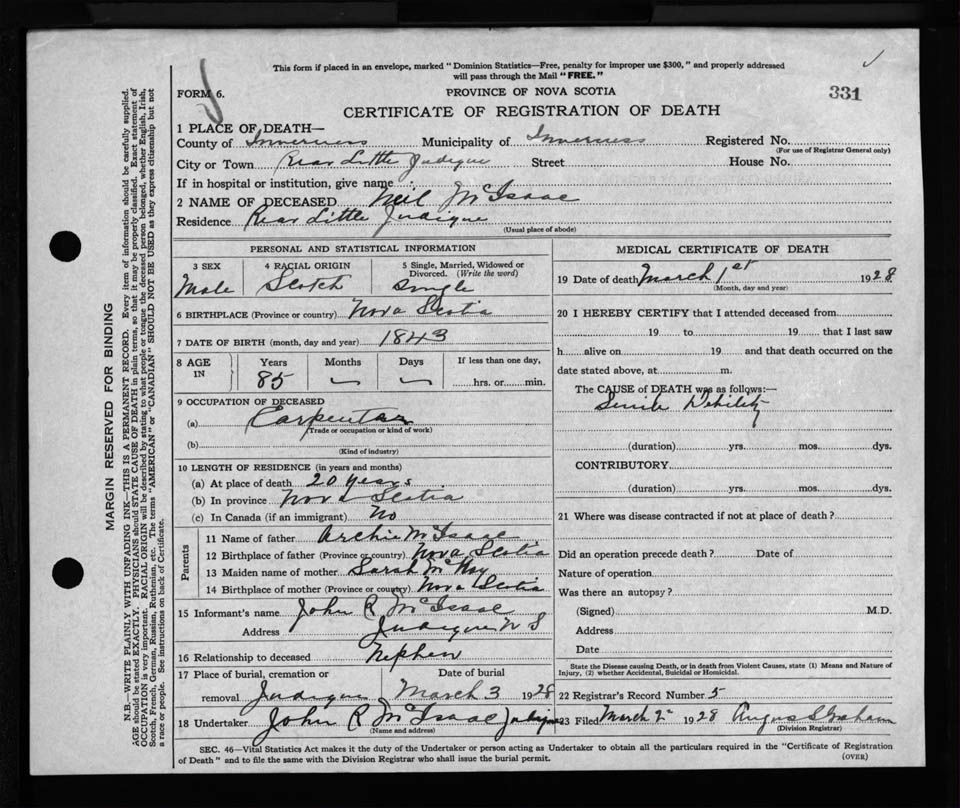 This form if placed in an envelope, marked "Dominion Statistics—Free, penalty for improper use $300," and properly addressed
will pass through the Mail "FREE."
FORM 6.
PROVINCE OF NOVA SCOTIA
331
CERTIFICATE OF REGISTRATION OF DEATH
1 PLACE OF DEATH—
County of Inverness Municipality of Inverness Registered No.
(For use of Registrar General only)
City or Town Rear Little Judique Street House No.
If in hospital or institution, give name
2 NAME OF DECEASED Neil McIsaac
Residence Rear Little Judique
(Usual place of abode)
PERSONAL AND STATISTICAL INFORMATION
3 SEX 4 RACIAL ORIGIN 5 Single, Married, Widowed or
Divorced. (Write the word)
Male Scotch Single
6 BIRTHPLACE (Province or country) Nova Scotia
7 DATE OF BIRTH (month, day and year) 1843
8 AGE IN Years Months Days If less than one day,
85 hrs. or min.
9 OCCUPATION OF DECEASED
(a) Carpenter
(Trade or occupation or kind of work)
(b)
(Kind of industry)
10 LENGTH OF RESIDENCE (in years and months)
(a) At place of death 20 years
(b) In province Nova Scotia
(c) In Canada (if an immigrant) No
Parents
11 Name of father Archie McIsaac
12 Birthplace of father (Province or country) Nova Scotia
13 Maiden name of mother Sarah McKay
14 Birthplace of mother (Province or country) Nova Scotia
15 Informant's name John R McIsaac
Address Judique N S
16 Relationship to deceased Nephew
17 Place of burial, cremation or Date of burial
removal Judique March 3 1928
18 Undertaker John R McIsaac Judique
(Name and address)
MEDICAL CERTIFICATE OF DEATH
19 Date of death March 1st 1928
(Month, day and year)
20 I HEREBY CERTIFY that I attended deceased from
19 to 19 that I last saw
h alive on 19 and that death occurred on the
date stated above, at m.
The CAUSE of DEATH was as follows:—
Senile Debility
(duration) yrs. mos. dys.
CONTRIBUTORY
(duration) yrs. mos. dys.
21 Where was disease contracted if not at place of death?
Did an operation precede death? Date of
Nature of operation
Was there an autopsy?
(Signed) M.D.
Address
Date
State the Disease causing Death, or in death from Violent Causes, state (1) Means and Nature of
Injury, (2) whether Accidental, Suicidal or Homicidal.
22 Registrar's Record Number 5
23 Filed March 2 1928 Angus S Graham
(Division Registrar)
SEC. 46—Vital Statistics Act makes it the duty of the Undertaker or person acting as Undertaker to obtain all the particulars required in the "Certificate of Registration
of Death" and to file the same with the Division Registrar who shall issue the burial permit.
(OVER)
MARGIN RESERVED FOR BINDING
N.B.—WRITE PLAINLY WITH UNFADING INK—THIS IS A PERMANENT RECORD. Every item of information should be carefully supplied.
AGE should be stated EXACTLY. PHYSICIANS should STATE CAUSE OF DEATH in plain terms, so that it may be properly classified. Exact statement of
OCCUPATION is very important. RACIAL ORIGIN will be described by stating to what people or tongue the deceased person belonged, whether English, Irish,
Scotch, French, German, Russian, Ruthenian, etc. The terms "AMERICAN" or "CANADIAN" SHOULD NOT BE USED as they express citizenship but not
a race or people. See instructions on back of Certificate.